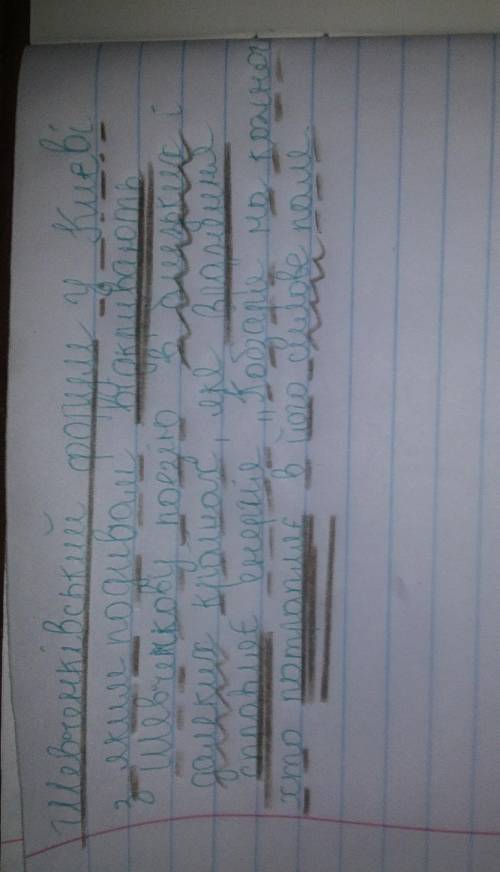 Шевченківський форум у Києві
з яким подивом відкривають
Шевченкову поезію в близьких і
далеких краях, яке враження
справляє енергія „Кобзаря на кожног
хто потрапляє в його силове поле